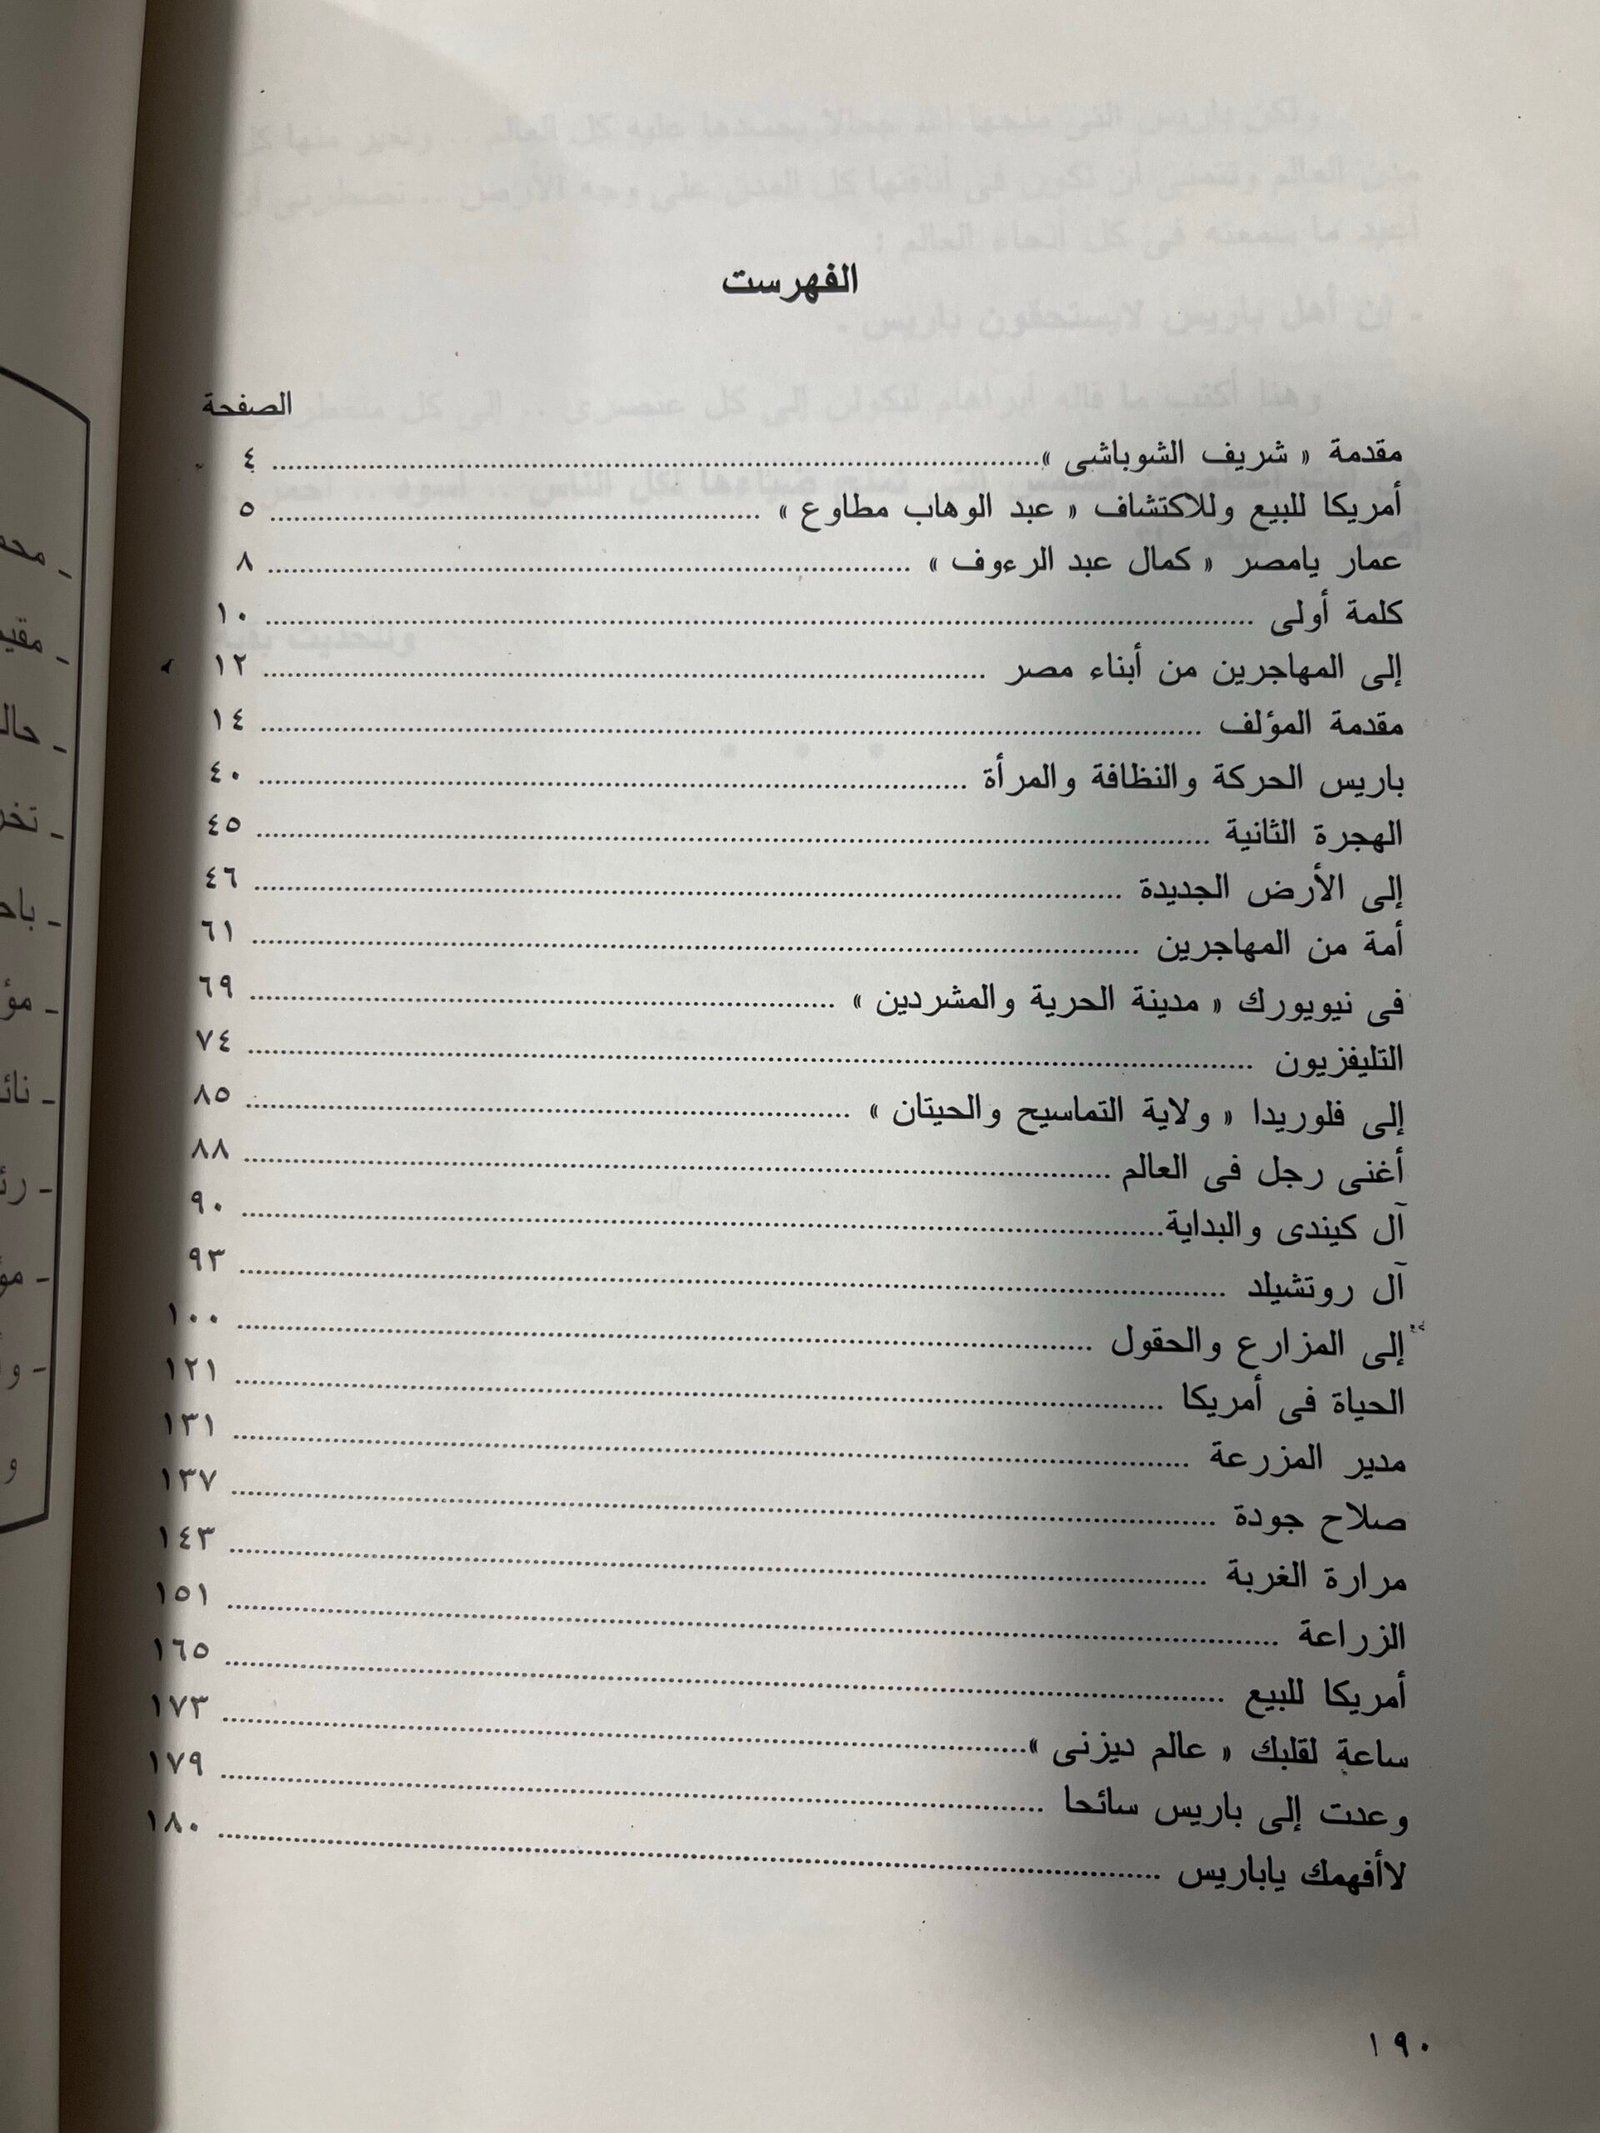 الفهرست
الصفحة
مقدمة « شريف الشوباشى »........ ٤
أمريكا للبيع وللاكتشاف « عبد الوهاب مطاوع » ........ ٥
عمار يامصر « كمال عبد الرءوف » ........ ٨
كلمة أولى ........ ١٠
إلى المهاجرين من أبناء مصر ........ ١٢
مقدمة المؤلف ........ ١٤
باريس الحركة والنظافة والمرأة ........ ٤٠
الهجرة الثانية ........ ٤٥
إلى الأرض الجديدة ........ ٤٦
أمة من المهاجرين ........ ٦١
فى نيويورك « مدينة الحرية والمشردين » ........ ٦٩
التليفزيون ........ ٧٤
إلى فلوريدا « ولاية التماسيح والحيتان » ........ ٨٥
أغنى رجل فى العالم ........ ٨٨
آل كيندى والبداية........ ٩٠
آل روتشيلد ........ ٩٣
إلى المزارع والحقول ........ ١٠٠
الحياة فى أمريكا ........ ١٢١
مدير المزرعة ........ ١٣١
صلاح جودة ........ ١٣٧
مرارة الغربة ........ ١٤٣
الزراعة ........ ١٥١
أمريكا للبيع ........ ١٦٥
ساعة لقلبك « عالم ديزنى »........ ١٧٣
وعدت إلى باريس سائحا ........ ١٧٩
لاأفهمك ياباريس ........ ١٨٠
١٩٠